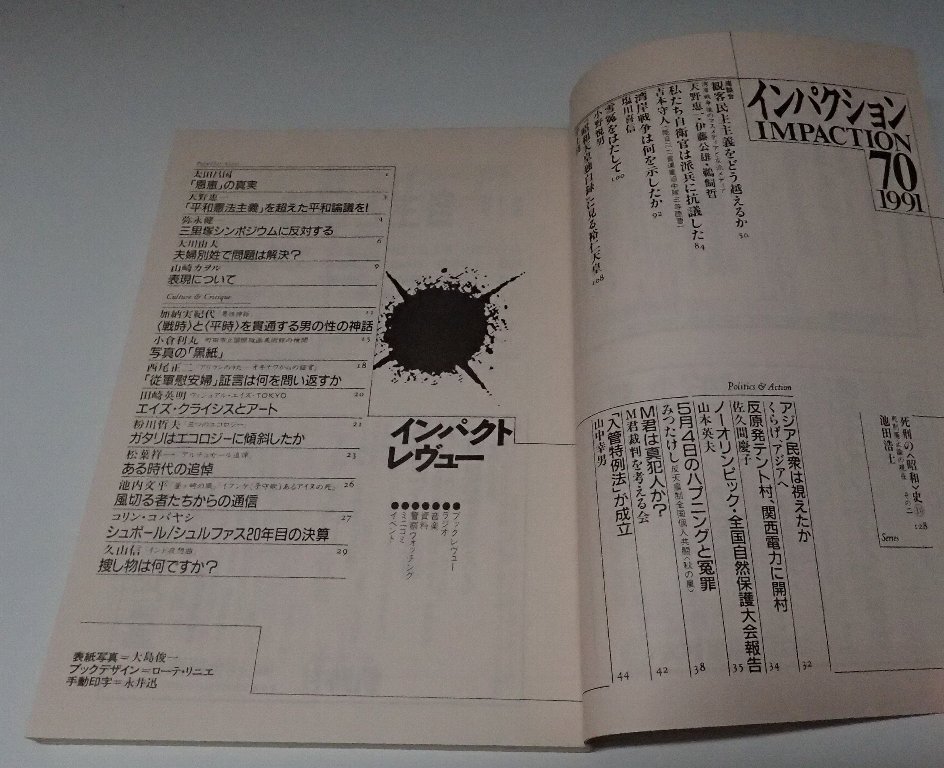 インパクション
IMPACTION
70
1991
座談会
観客民主主義をどう越えるか 50
天野恵一・伊藤公雄・鵜飼哲
私たち自衛官は派兵に抗議した 84
吉本守人
湾岸戦争は何を示したか 92
塩川喜信
小野悦男
108
死刑の〈昭和〉史⑲ 128
池田浩士
Series
Politics & Action
アジア民衆は視えたか 32
くらげ「アジアへ
反原発テント村、関西電力に開村 34
佐久間慶子
ノーオリンピック・全国自然保護大会報告 35
山本英夫
5月4日のハプニングと冤罪 38
みつたけし 反天皇制全国個人共闘〈秋の嵐〉
M君は真犯人か？ 42
M君裁判を考える会
「入管特例法」が成立 44
山中幸男
太田昌国 1
「恩恵」の真実
天野恵一 3
「平和憲法主義」を超えた平和論議を！
弥永健一 4
三里塚シンポジウムに反対する
大川由夫 6
夫婦別姓で問題は解決？
山崎カヲル 9
表現について
Culture & Critique
加納実紀代 11
〈戦時〉と〈平時〉を貫通する男の性の神話
小倉利丸 15
写真の「黒紙」
西尾正二 18
「従軍慰安婦」証言は何を問い返すか
田崎英明 ヴィジュアル・エイズ・TOKYO 20
エイズ・クライシスとアート
粉川哲夫 三つのエコロジー 21
ガタリはエコロジーに傾斜したか
松葉祥一 アルチュセール追悼 23
ある時代の追悼
池内文平 26
風切る者たちからの通信
コリン・コバヤシ 27
シュポール/シュルファス20年目の決算
久山信 29
捜し物は何ですか？
インパクト
レヴュー
●ブックレヴュー
●ラジオ
●音楽
●資料
●警察ウォッチング
●ミニコミ
●イベント
表紙写真＝大島俊一
ブックデザイン＝ローテ・リニエ
手動印字＝永井迅